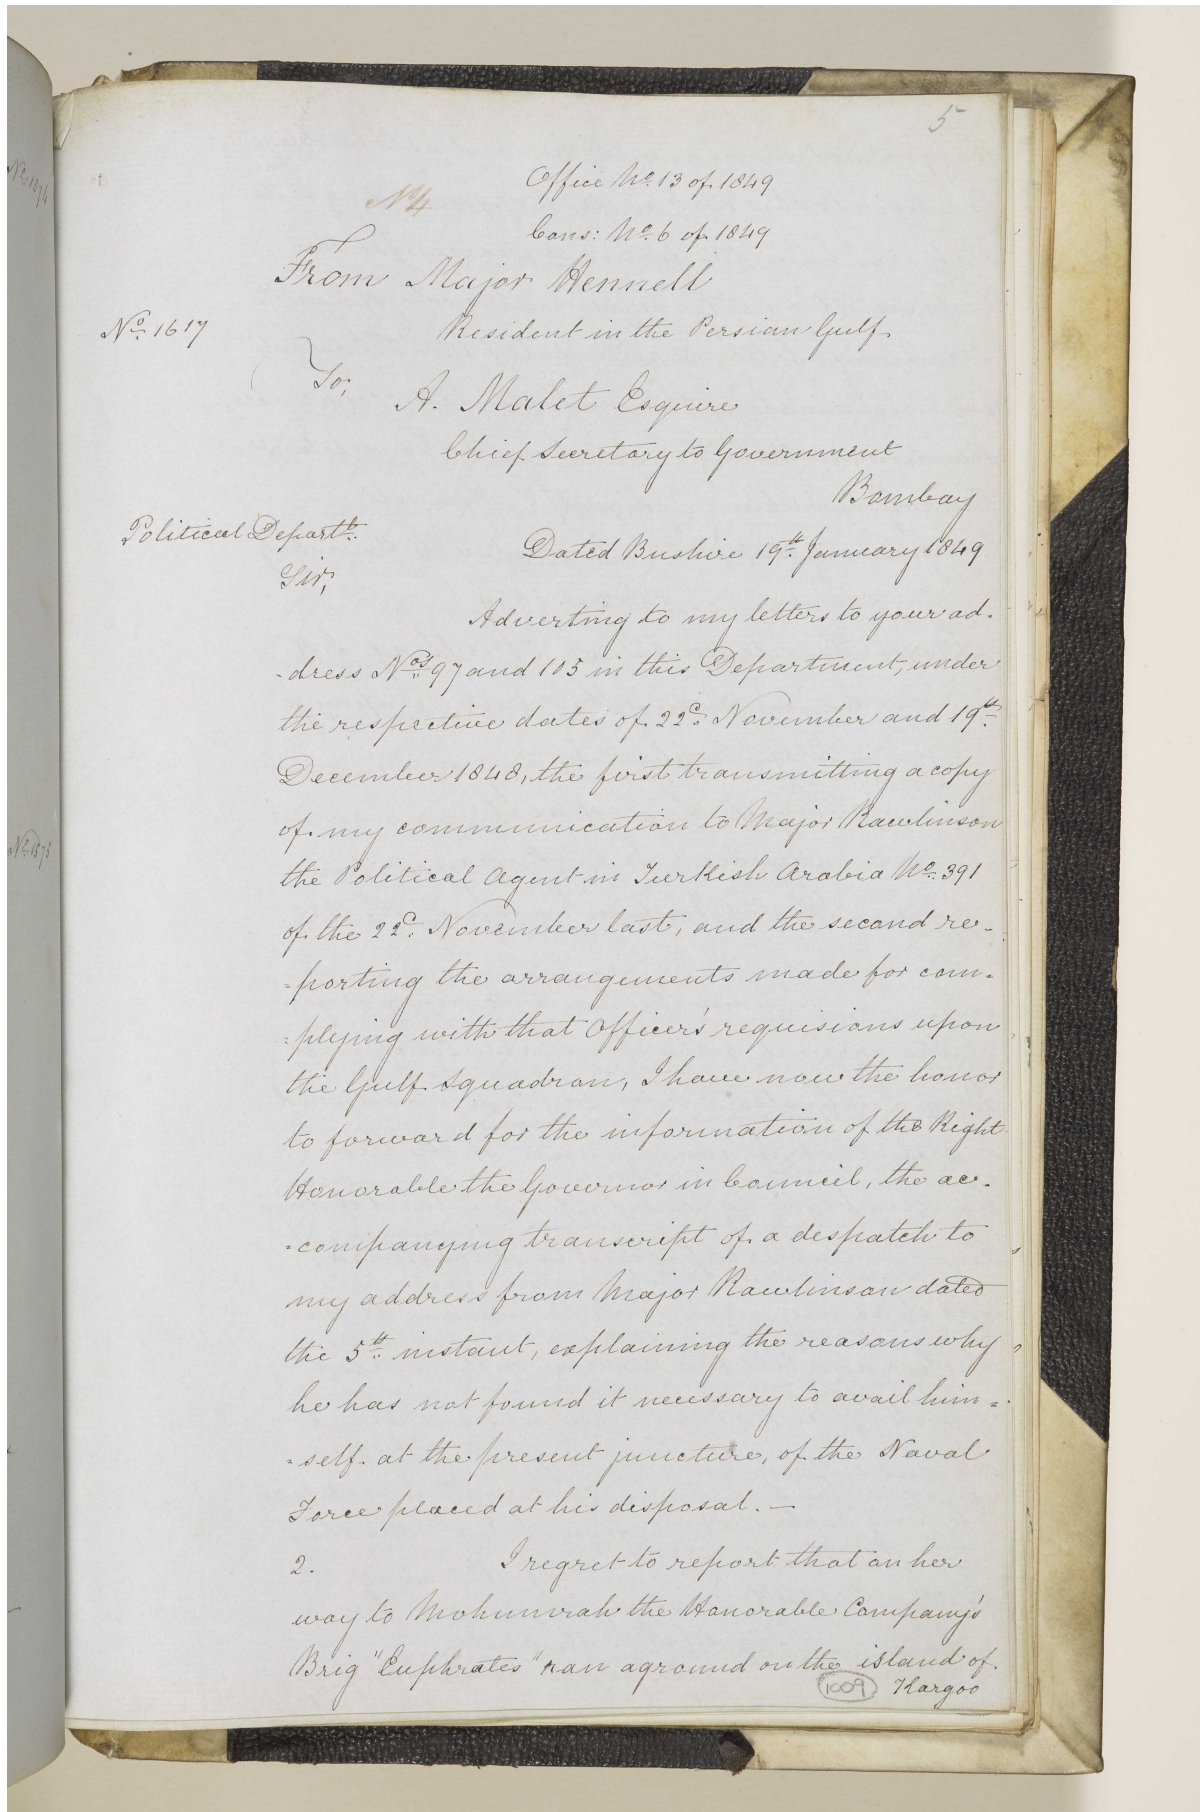 5
Office No. 13 of 1849
No 4
Cons: No. 6 of 1849
From Major Hennell
No. 1617
Resident in the Persian Gulf
To,
A. Malet Esquire
Chief Secretary to Government
Bombay
Political Departt.
Dated Bushire 19th January 1849
Sir,
Adverting to my letters to your ad-
-dress Nos 97 and 105 in this Department, under
the respective dates of 22d. November and 19th
December 1848, the first transmitting a copy
of my communication to Major Rawlinson
the Political Agent in Turkish Arabia No. 391
of the 22d. November last, and the second re-
-porting the arrangements made for com-
-plying with that Officer's requisions upon
the Gulf Squadron, I have now the honor
to forward for the information of the Right
Honorable the Governor in Council, the ac-
-companying transcript of a despatch to
my address from Major Rawlinson dated
the 5th instant, explaining the reasons why
he has not found it necessary to avail him-
-self at the present juncture, of the Naval
Force placed at his disposal. —
2. I regret to report that on her
way to Mohumrah the Honorable Company's
Brig "Euphrates" ran aground on the island of
1009 Kargoo
No. 1574
No. 1575